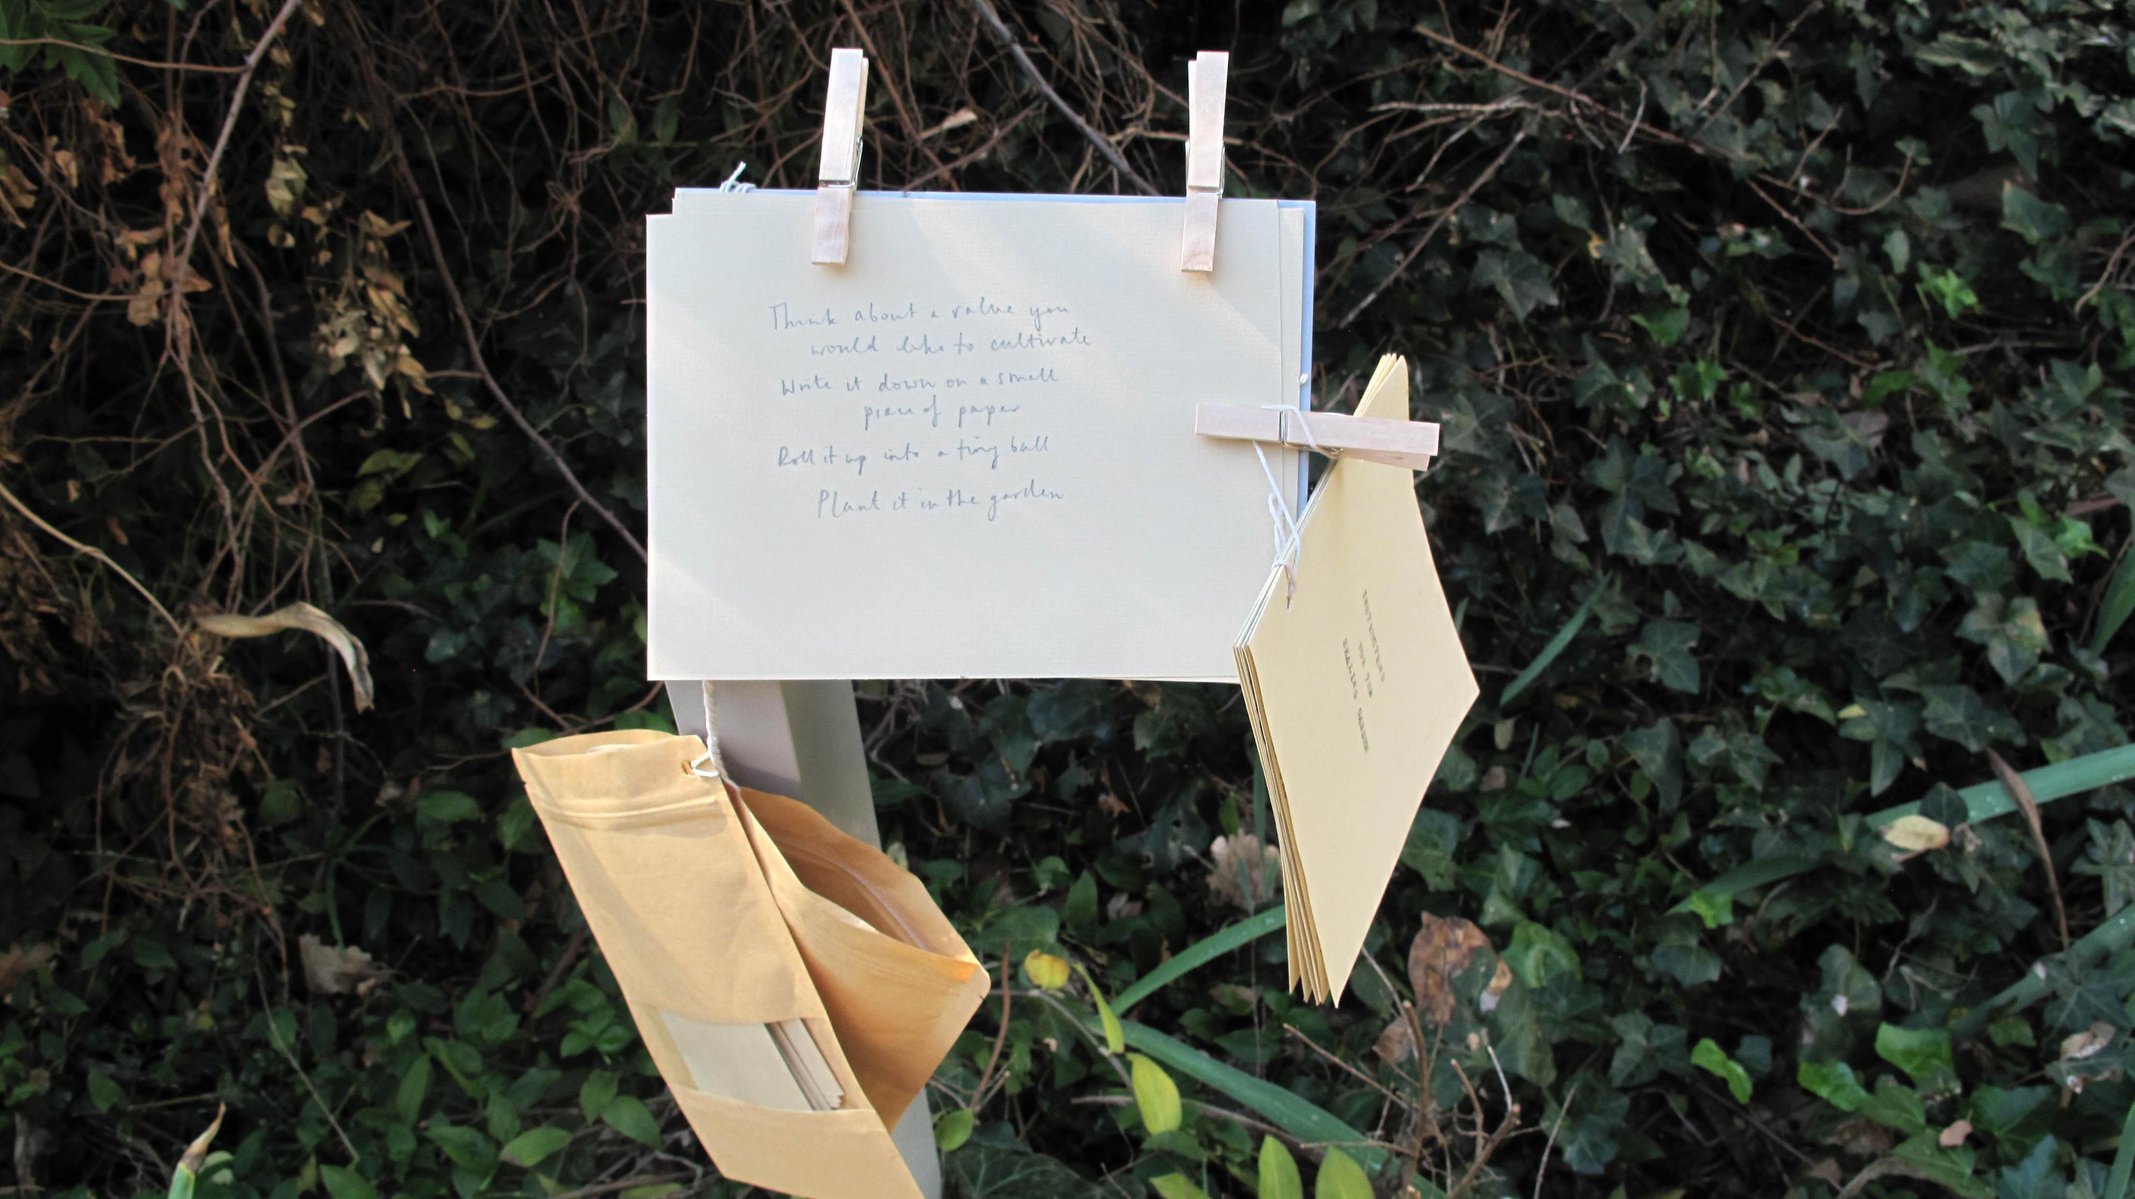 Think about a value you
would like to cultivate
Write it down on a small
piece of paper
Roll it up into a tiny ball
Plant it in the garden
INSTRUCTIONS
FOR THE
HEALING GARDEN